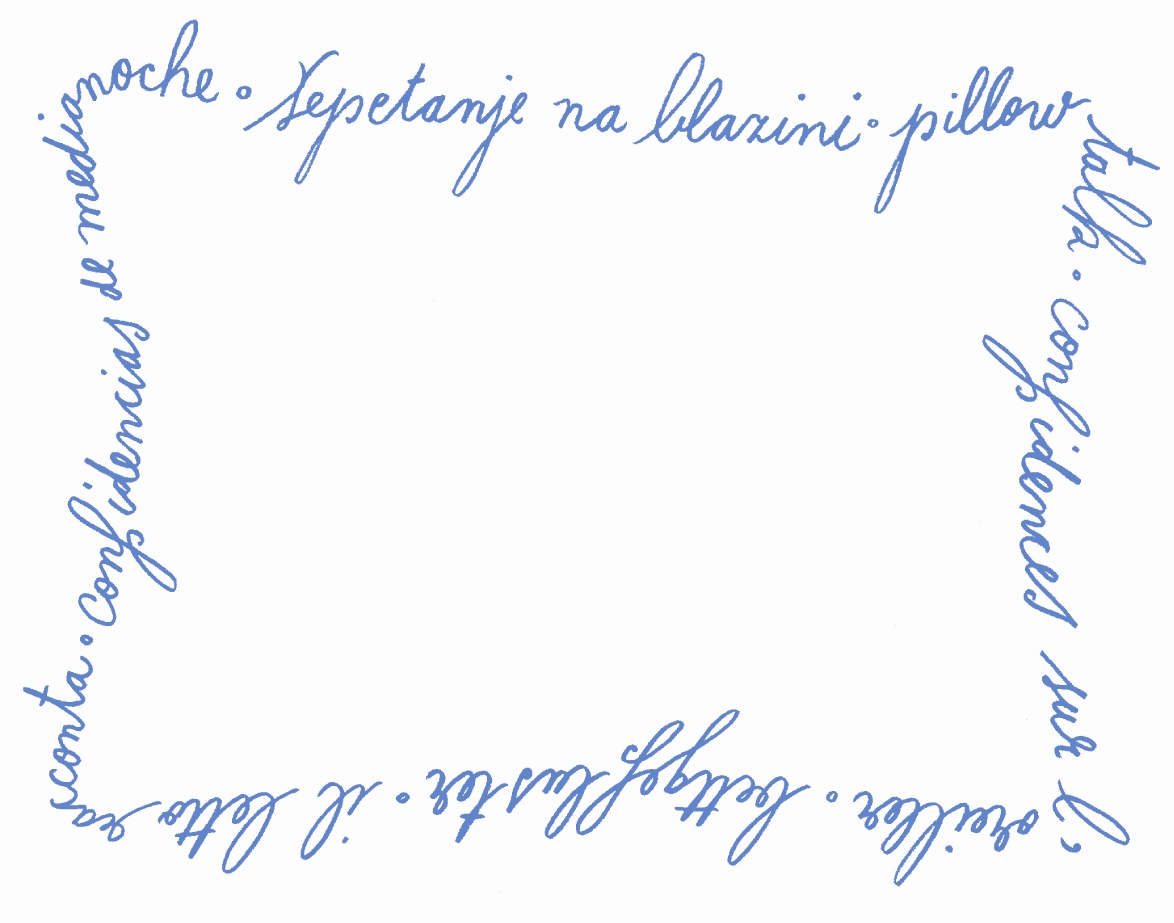 šepetanje na blazini · pillow
talk · confidences sur l'
oreiller · bettgeflüster · il letto
racconta · confidencias de medianoche ·